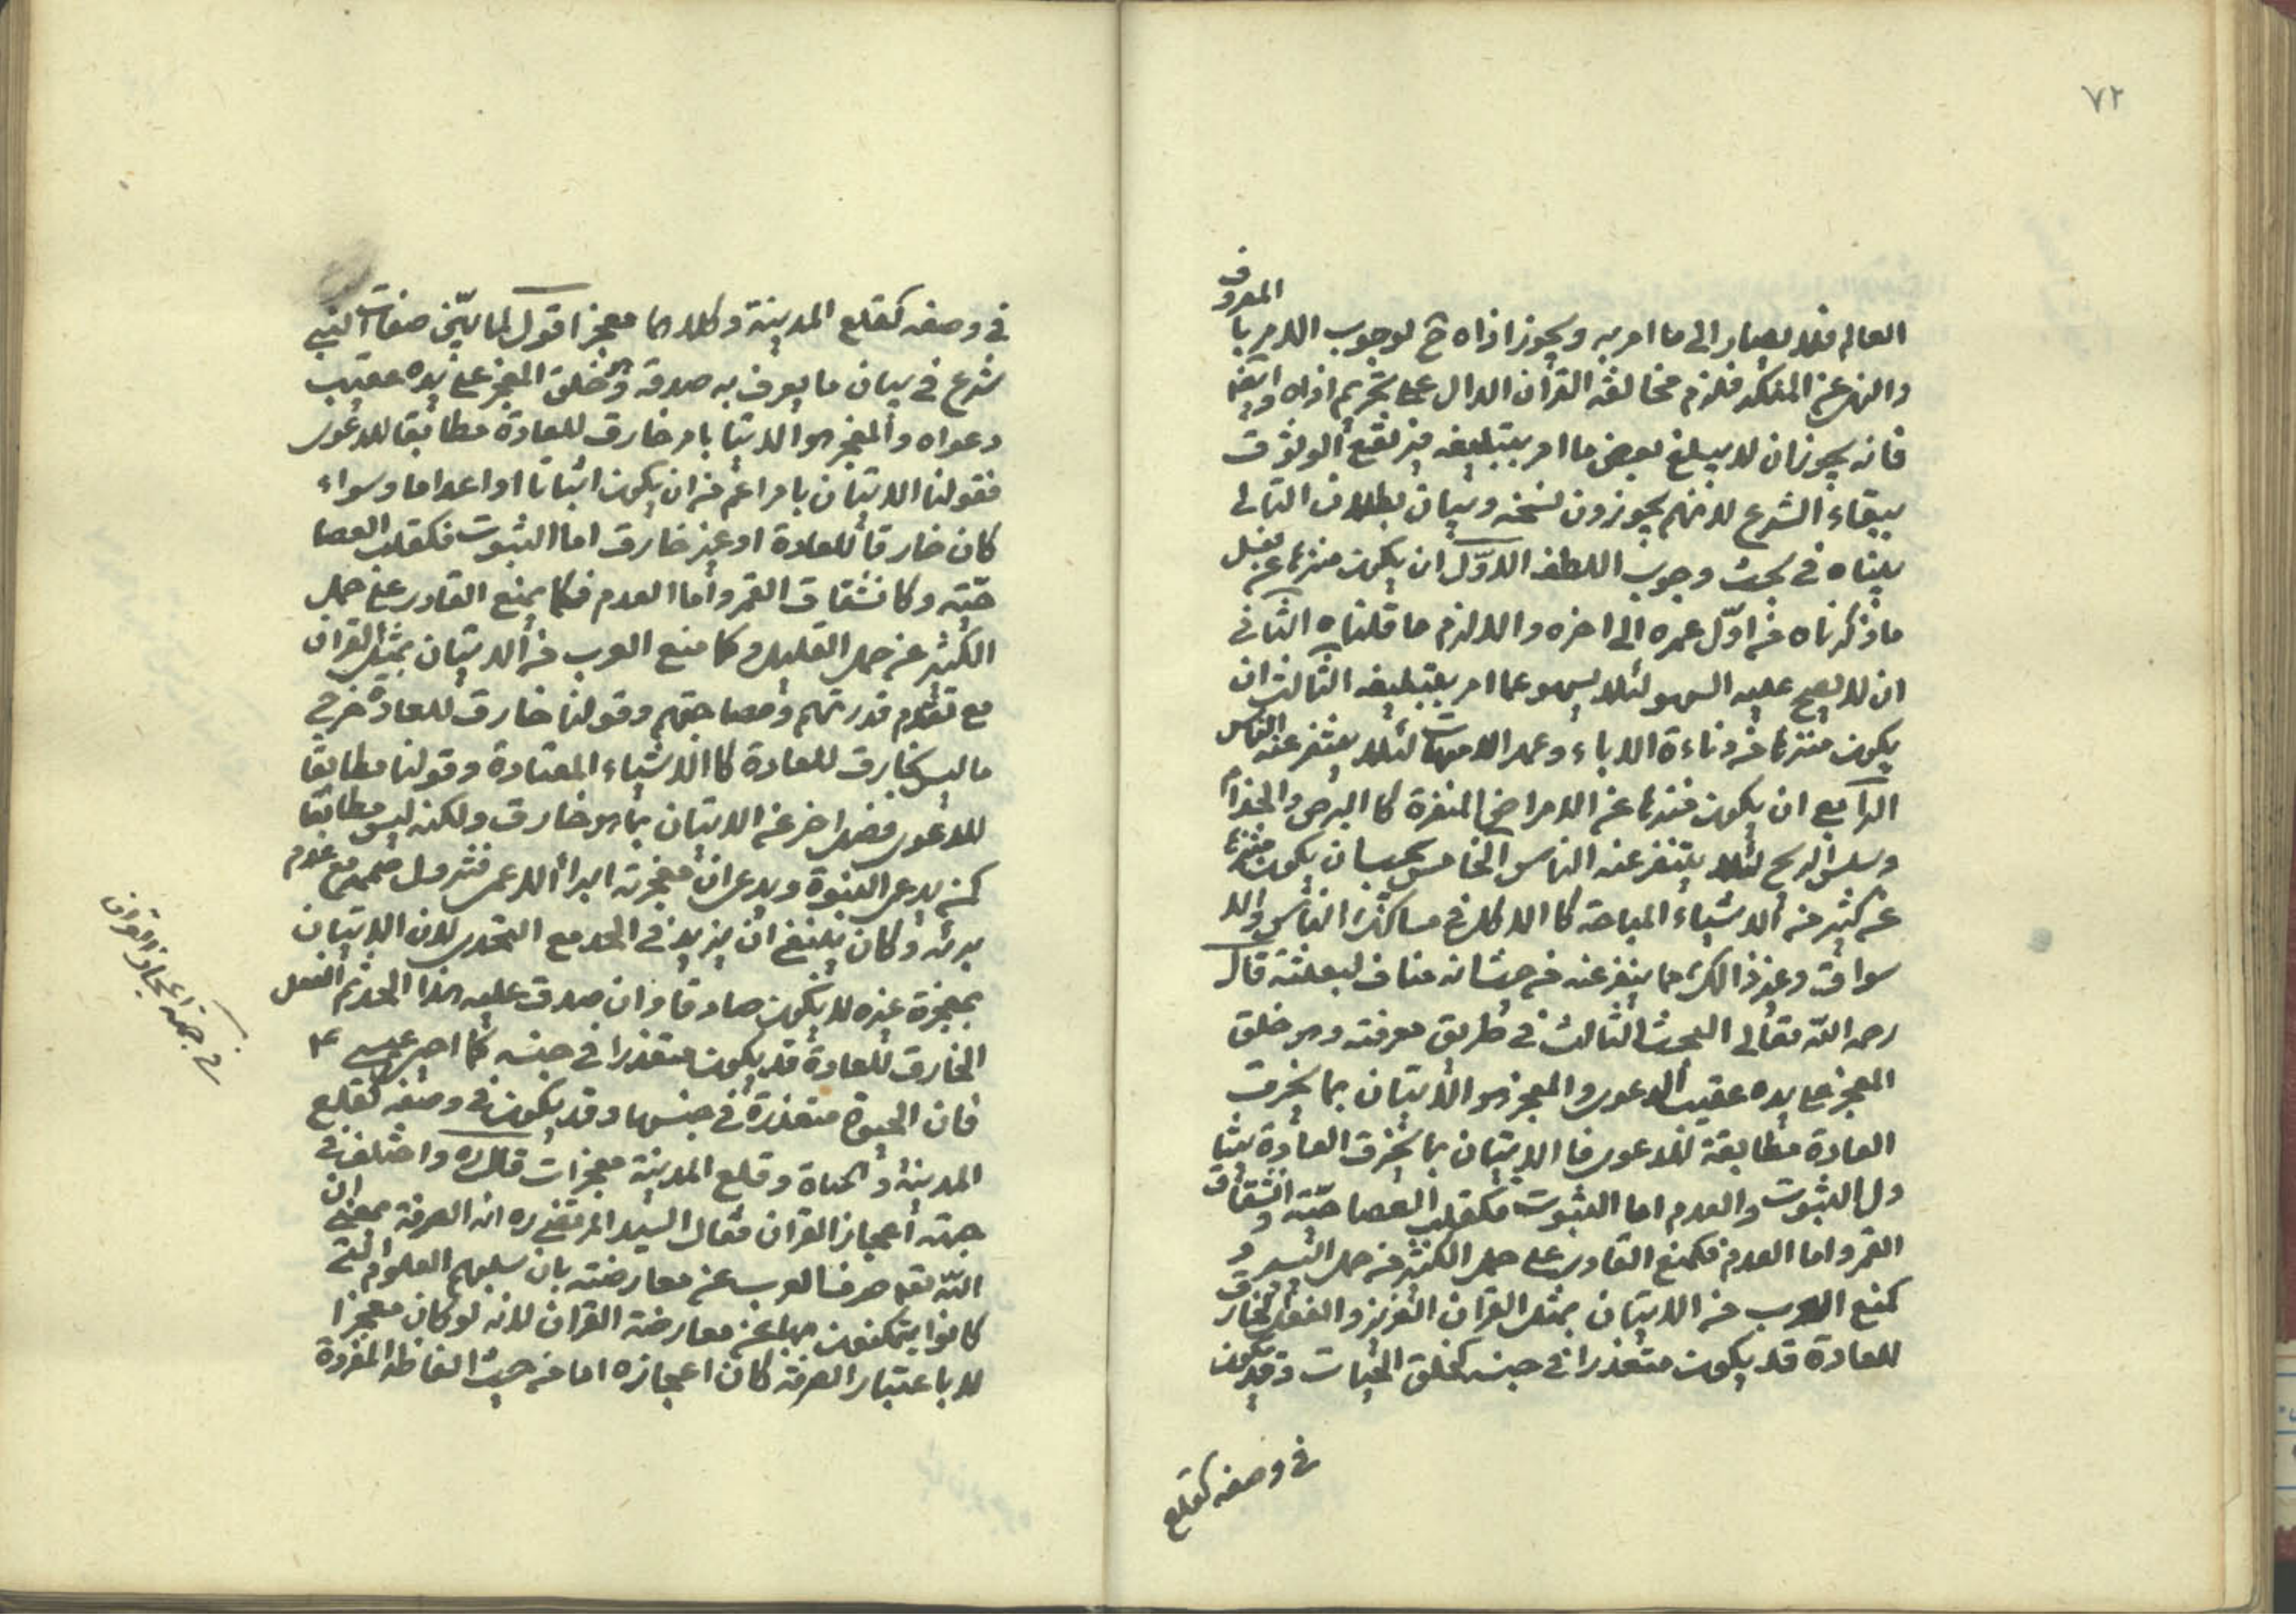 ٧٢
العالم فلا يصار الى ما امر به ويجوز اذاه ح لوجوب الامر با المعروف
والنهى عن المنكر فلزم مخالفه القرآن الدال على تحريم اذاه وايضا
فانه يجوز ان لا يبلغ بعض ما امر بتبليغه فيرتفع الوثوق
ببقاء الشرع لانهم يجوزون نسخه وبيان بطلان التالى
بيناه فى بحث وجوب اللطف الاوّل ان يكون منزها عن
ما ذكرناه من اوّل عمره الى اخره والا لزم ما قلناه الثانى
ان لا يصح عليه السهو لئلا يسهو عما امر بتبليغه الثالث ان
يكون منزها من دناءة الاباء وعهر الامهات لئلا يتنفر عنه الناس
الرابع ان يكون منزها عن الامراض المنفرة كا البرص والجذام
وسلس الريح لئلا يتنفر عنه الناس الخامس يجب ان يكون منزها
عن كثير من الاشياء المباحة كا الاكل فى مسالك الناس والا
سواق وغير ذالك مما ينفر عنه من حيث انه مناف لبعثته قال
رحمه اللّه تعالى البحث الثالث فى طريق معرفته وهو خلق
المعجز على يده عقيب الدعوى والمعجز هو الاتيان بما يخرق
العادة مطابقة للدعوى فا الاتيان بما يخرق العادة يتنا
ول الثبوت والعدم اما الثبوت فكقلب العصا حيّة وانشقاق
القمر واما العدم فكمنع القادر على حمل الكثير من حمل اليسير و
كمنع العرب من الاتيان بمثل القران العزيز والفعل الخارق
للعادة قد يكون متعذرا فى جنسه كخلق الحيات وقد يكون
فى وصفه كقلع
فى وصفه كقلع المدينة وكلاهما معجز اقول لما بيّن صفات النبى
شرع فى بيان ما يعرف به صدقه وهو خلق المعجز على يده عقيب
دعواه والمعجز هو الاتيا بامر خارق للعادة مطابقا للدعوى
فقولنا الاتيان بامر اعم من ان يكون اثباتا او اعداما وسواء
كان خارقا للعادة او غير خارق اما الثبوت فكقلب العصا
حيّه وكانشقاق القمر واما العدم فكما يمنع القادر على حمل
الكثير عن حمل القليل وكما منع العرب من الاتيان بمثل القران
مع تقدم قدرتهم وفصاحتهم وقولنا خارق للعادة خرج
ما ليس بخارق للعادة كا الاشياء المعتادة وقولنا مطابقا
للدعوى فصل اخر عن الاتيان بما هو خارق ولكنه ليس مطابقا
كمن يدعى النبوة ويدعى ان معجزته ابراء الاعمى فنزول صممه مع عدم
برئه وكان ينبغى ان يزيد فى الحد مع التحدى لان الاتيان
بمعجزة غيره لا يكون صادقا وان صدق عليه هذا الحد ثم الفعل
الخارق للعادة قد يكون متعذرا فى جنسه كما احيى عيسى ع
فان الحيوة متعذرة فى جنسها وقد يكون فى وصفه كقلع
المدينة والحياة وقلع المدينة معجزات قال ره واختلف فى
جهة اعجاز القران فقال السيد المرتضى ره انه الصرفة بمعنى ان
اللّه تعه صرف العرب عن معارضته بان سلبهم العلوم التى
كانوا يتمكنون بها عن معارضة القران لانه لو كان معجزا
لا باعتبار الصرفة كان اعجازه اما من حيث الفاظه المفردة
فى جهة اعجاز القران